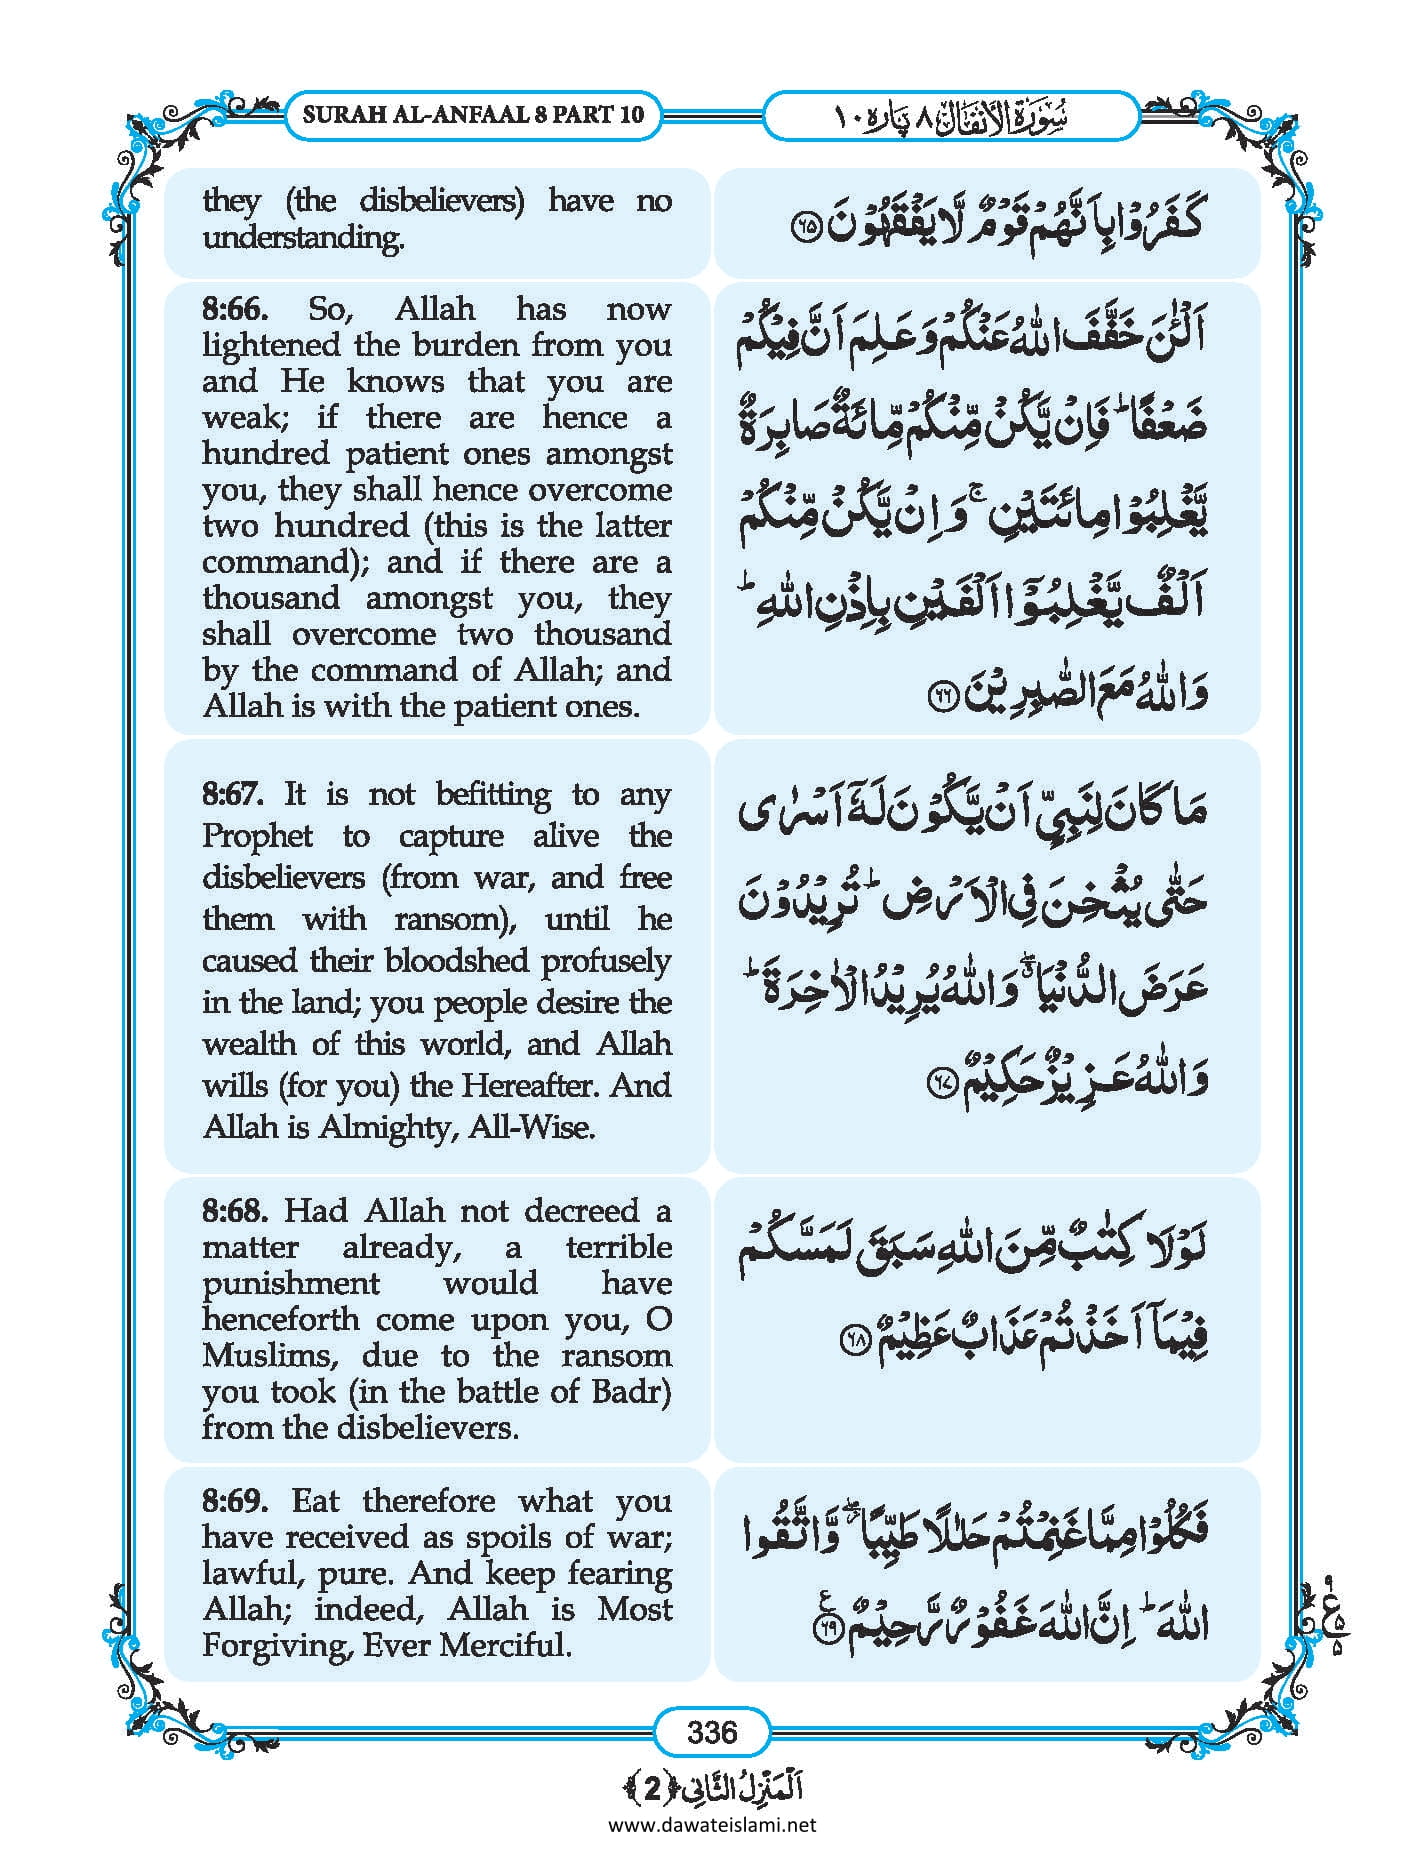 SURAH AL-ANFAAL 8 PART 10
سُوْرَةُ الْاَنْفَال ٨ پارہ ١٠
they (the disbelievers) have no
understanding.
كَفَرُوْا بِاَنَّهُمْ قَوْمٌ لَّا يَفْقَهُوْنَ ﴿٦٥﴾
8:66. So, Allah has now
lightened the burden from you
and He knows that you are
weak; if there are hence a
hundred patient ones amongst
you, they shall hence overcome
two hundred (this is the latter
command); and if there are a
thousand amongst you, they
shall overcome two thousand
by the command of Allah; and
Allah is with the patient ones.
اَلْـٰٔنَ خَفَّفَ اللّٰهُ عَنْكُمْ وَ عَلِمَ اَنَّ فِيْكُمْ
ضَعْفًا ؕ فَاِنْ يَّكُنْ مِّنْكُمْ مِّائَةٌ صَابِرَةٌ
يَّغْلِبُوْا مِائَتَيْنِ ۚ وَ اِنْ يَّكُنْ مِّنْكُمْ
اَلْفٌ يَّغْلِبُوْۤا اَلْفَيْنِ بِاِذْنِ اللّٰهِ ؕ
وَ اللّٰهُ مَعَ الصّٰبِرِيْنَ ﴿٦٦﴾
8:67. It is not befitting to any
Prophet to capture alive the
disbelievers (from war, and free
them with ransom), until he
caused their bloodshed profusely
in the land; you people desire the
wealth of this world, and Allah
wills (for you) the Hereafter. And
Allah is Almighty, All-Wise.
مَا كَانَ لِنَبِيٍّ اَنْ يَّكُوْنَ لَهٗۤ اَسْرٰى
حَتّٰى يُثْخِنَ فِي الْاَرْضِ ؕ تُرِيْدُوْنَ
عَرَضَ الدُّنْيَا ۖۗ وَ اللّٰهُ يُرِيْدُ الْاٰخِرَةَ ؕ
وَ اللّٰهُ عَزِيْزٌ حَكِيْمٌ ﴿٦٧﴾
8:68. Had Allah not decreed a
matter already, a terrible
punishment would have
henceforth come upon you, O
Muslims, due to the ransom
you took (in the battle of Badr)
from the disbelievers.
لَوْلَا كِتٰبٌ مِّنَ اللّٰهِ سَبَقَ لَمَسَّكُمْ
فِيْمَاۤ اَخَذْتُمْ عَذَابٌ عَظِيْمٌ ﴿٦٨﴾
8:69. Eat therefore what you
have received as spoils of war;
lawful, pure. And keep fearing
Allah; indeed, Allah is Most
Forgiving, Ever Merciful.
فَكُلُوْا مِمَّا غَنِمْتُمْ حَلٰلًا طَيِّبًا ۖؗ وَّ اتَّقُوا
اللّٰهَ ؕ اِنَّ اللّٰهَ غَفُوْرٌ رَّحِيْمٌ ﴿٦٩﴾ ع
336
اَلْمَنْزِلُ الثَّانِي ﴿2﴾
www.dawateislami.net